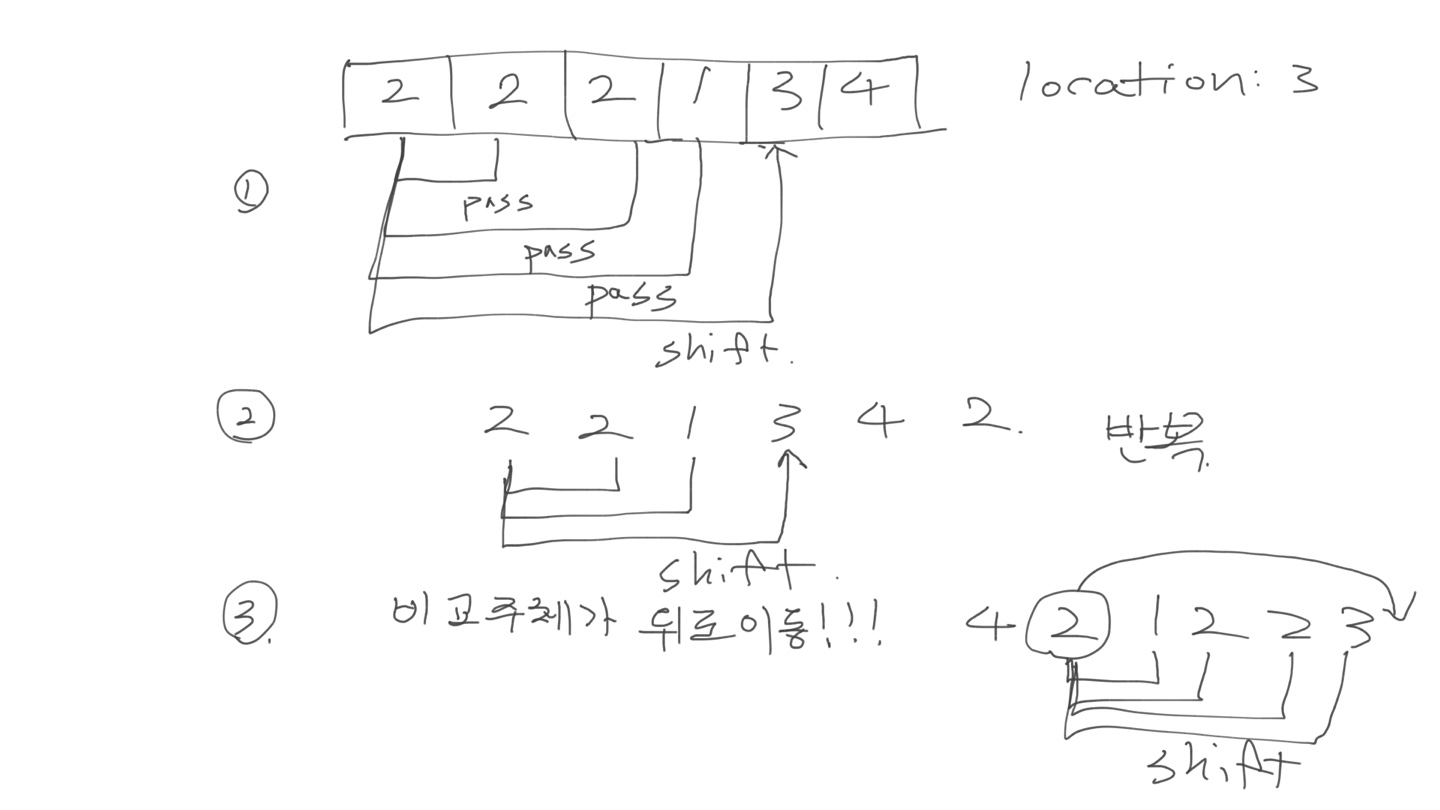 2 2 2 1 3 4 location: 3
①
pass
pass
pass
shift.
② 2 2 1 3 4 2. 반복.
shift.
③. 비교주체가 뒤로이동!!! 4 2 1 2 2 3
shift